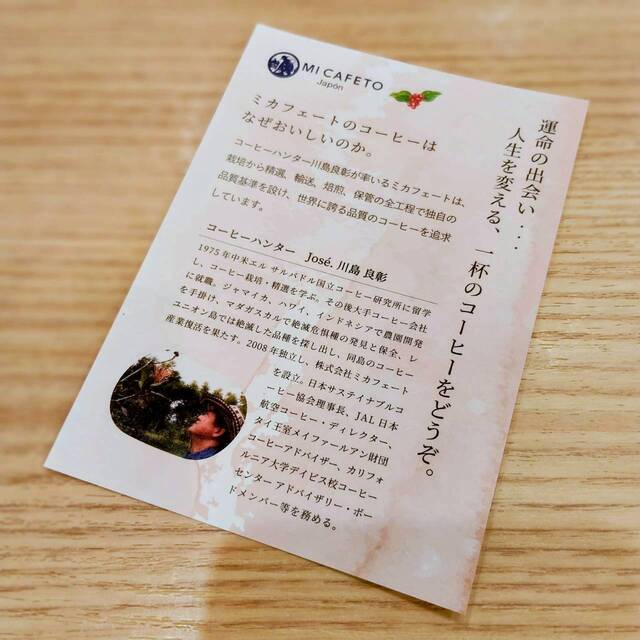 MI CAFETO
Japón
運命の出会い...
人生を変える、一杯のコーヒーをどうぞ。
ミカフェートのコーヒーは
なぜおいしいのか。
コーヒーハンター川島良彰が率いるミカフェートは、
栽培から精選、輸送、焙煎、保管の全工程で独自の
品質基準を設け、世界に誇る品質のコーヒーを追求
しています。
コーヒーハンター José. 川島 良彰
1975年中米エル サルバドル国立コーヒー研究所に留学
し、コーヒー栽培・精選を学ぶ。その後大手コーヒー会社
に就職。ジャマイカ、ハワイ、インドネシアで農園開発
を手掛け、マダガスカルで絶滅危惧種の発見と保全、レ
ユニオン島では絶滅した品種を探し出し、同島のコーヒー
産業復活を果たす。2008年独立し、株式会社ミカフェート
を設立。日本サステイナブルコ
ーヒー協会理事長、JAL日本
航空コーヒー・ディレクター、
タイ王室メイファールアン財団
コーヒーアドバイザー、カリフォ
ルニア大学デイビス校コーヒー
センターアドバイザリー・ボー
ドメンバー等を務める。